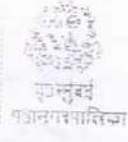 बृहन्मुंबई
महानगरपालिका